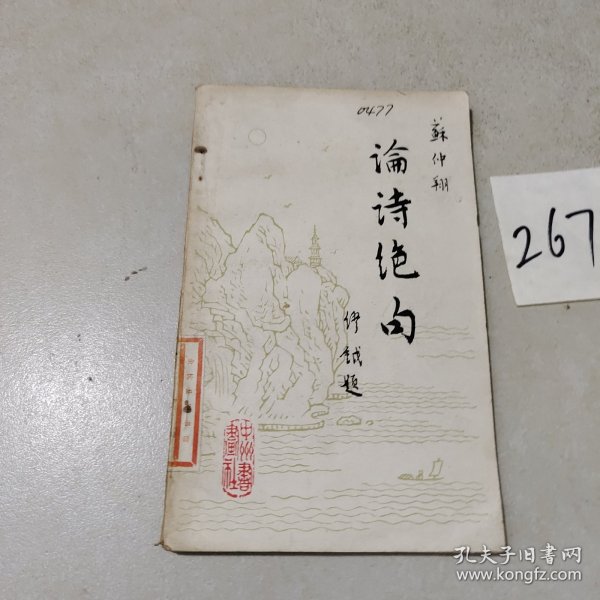 0477
蘇仲翔
論诗绝句
题
中州書畫社
267
孔夫子旧书网
www.kongfz.com